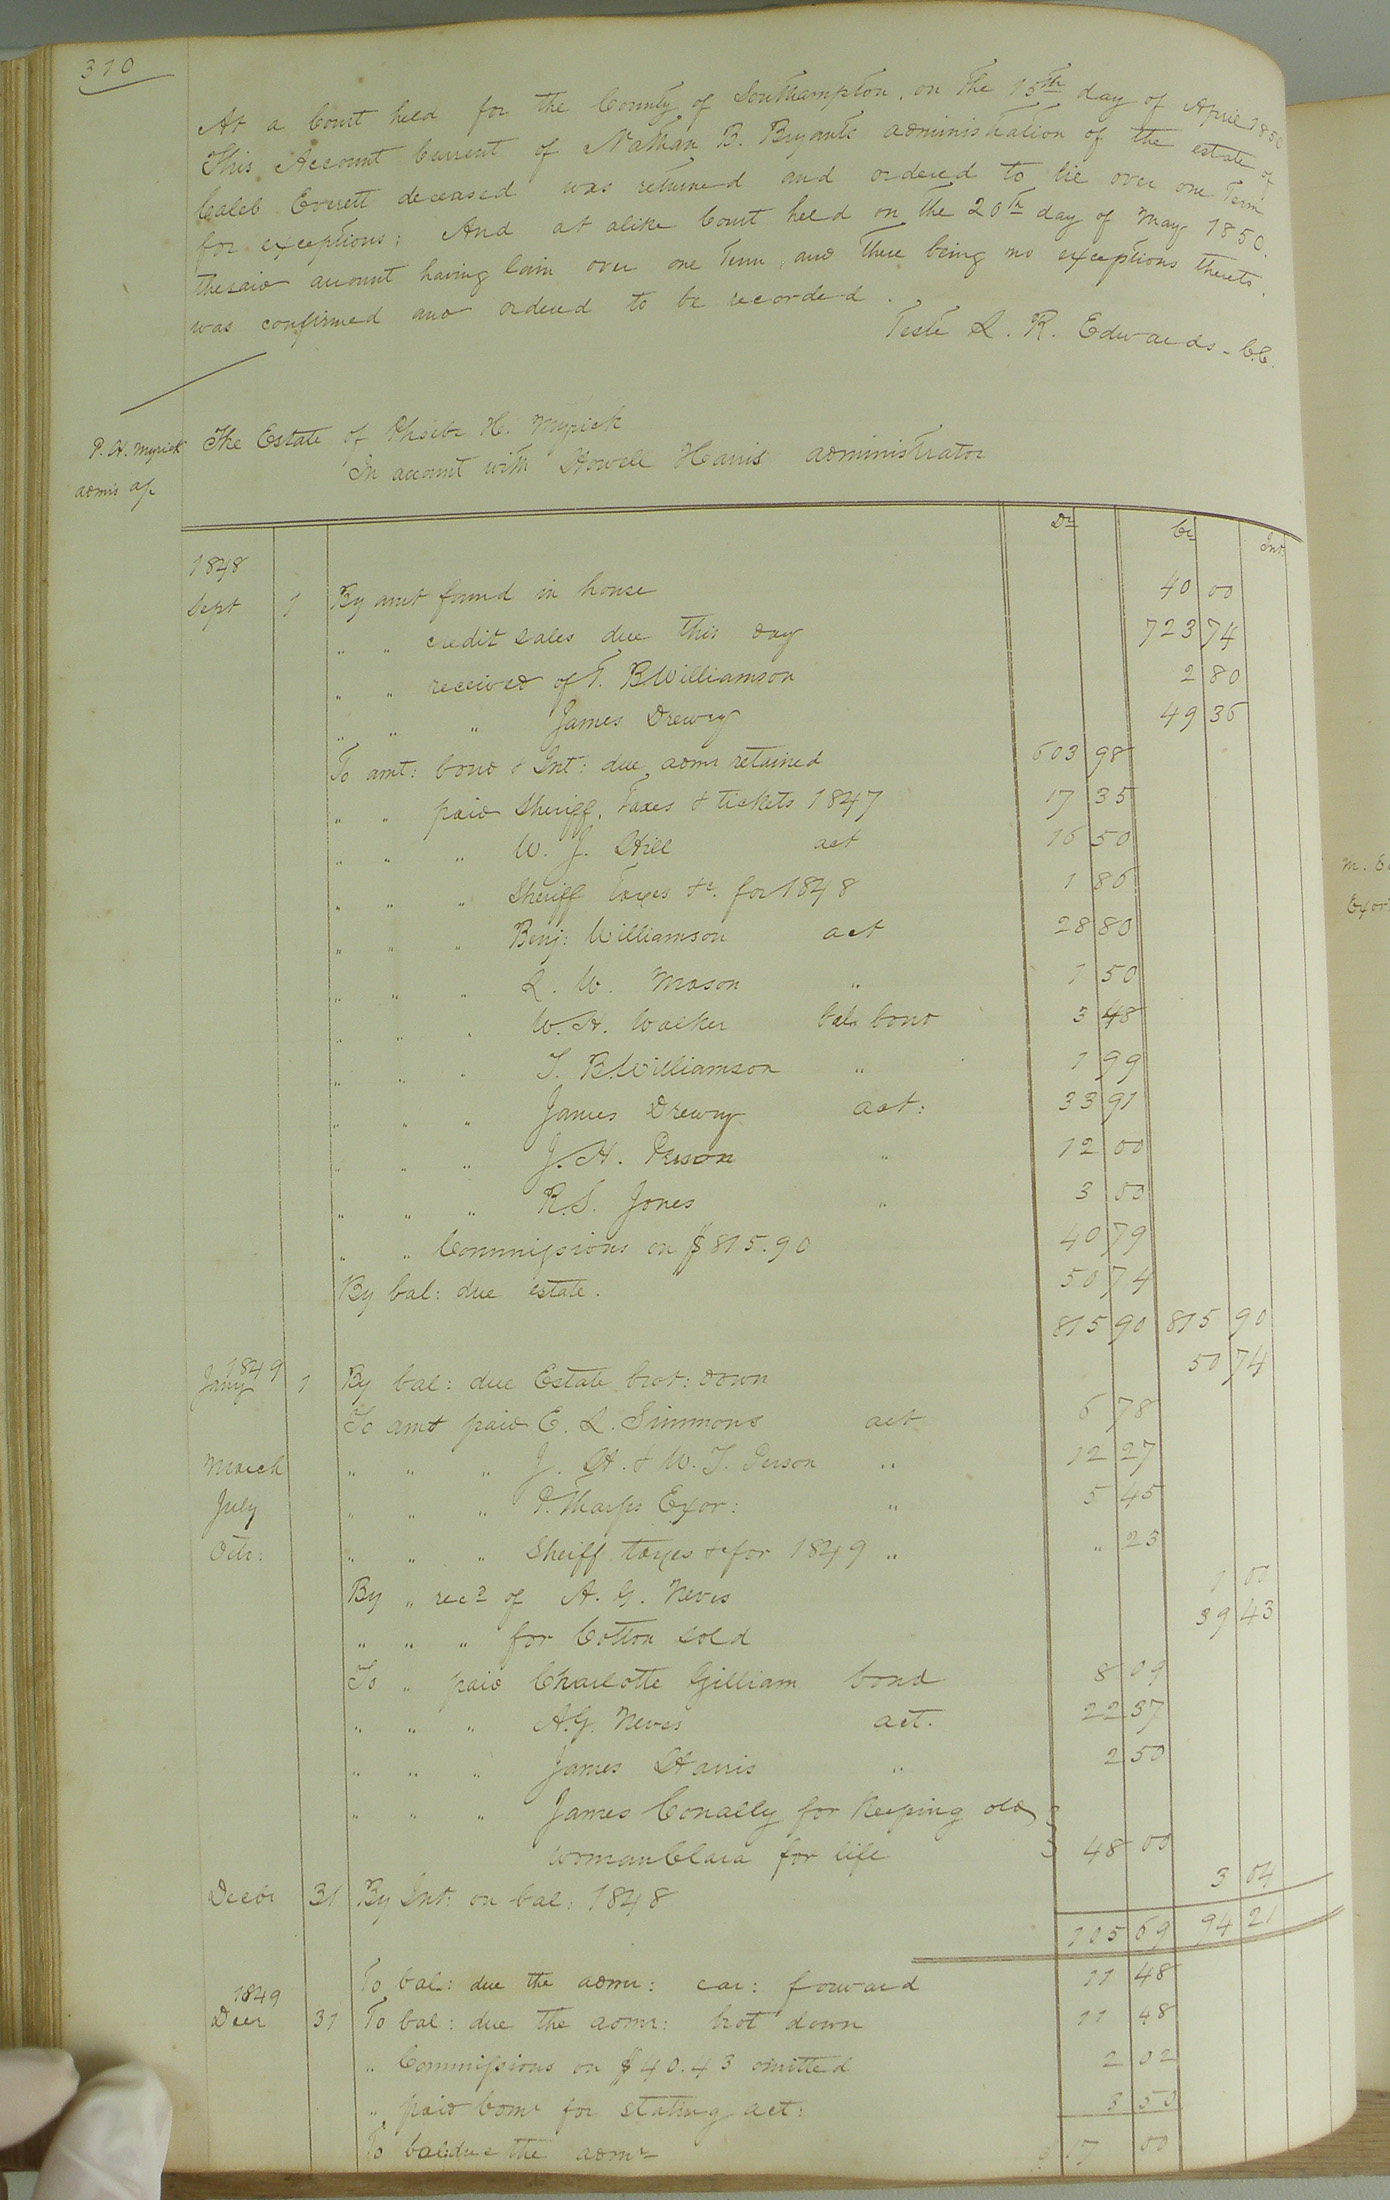 310
At a Court held for the County of Southampton, on the 15th day of April 1850
This Account Current of Nathan B. Bryants administration of the estate of
Caleb Everett deceased was returned and ordered to lie over one Term
for exceptions; And at alike Court held on the 20th day of May 1850.
thesaid account having lain over one Term, and there being no exceptions thereto,
was confirmed and ordered to be recorded.
Teste L. R. Edwards. C.C.
P. H. Myrick
admis a/c
The Estate of Phoebe H. Myrick
In account with Howell Harris administrator
Dr Cr Int:
1848
Sept 1 By amt found in house 40 00
" " credit sales due this day 723 74
" " received of T. B Williamson 2 80
" " " James Drewry 49 36
To amt: bond & Int: due admr retained 603 98
" " paid Sheriff, Taxes & tickets 1847 17 35
" " " W. J. Hill act 16 50
" " " Sheriff Taxes &c. for 1848 1 86
" " " Benj: Williamson act 28 80
" " " L. W. Mason " 1 50
" " " W. H. Walker bal. bond 3 48
" " " T. B. Williamson " 1 99
" " " James Drewry act: 33 91
" " " J. H. Person " 12 00
" " " R. S. Jones " 3 50
" " Commissions on $815.90 40 79
By bal: due estate. 50 74
815 90 815 90
1849
Jany 1 By bal: due Estate brot: down 50 74
To amt paid E. L. Simmons act 6 78
March " " " J. H. & W. T. Person " 12 27
July " " " P. Tharps Exor: " 5 45
Octo: " " " Sheriff taxes &c for 1849 " " 23
By " recd of A. G. Neves 1 00
" " " for Cotton sold 39 43
To " paid Charlotte Gilliam bond 8 09
" " " A. G. Neves act. 22 37
" " " James Harris " 2 50
" " " James Conally for keeping old
woman Clara for life 48 00
Decbr 31 By Int: on bal: 1848 3 04
105 69 94 21
To bal: due the admr: car: forward 11 48
1849
Decr 31 To bal: due the admr: brot down 11 48
" Commissions on $40.43 omitted 2 02
" paid Comr for stating act: 3 50
To bal due the admr $ 17 00
M.
Exor